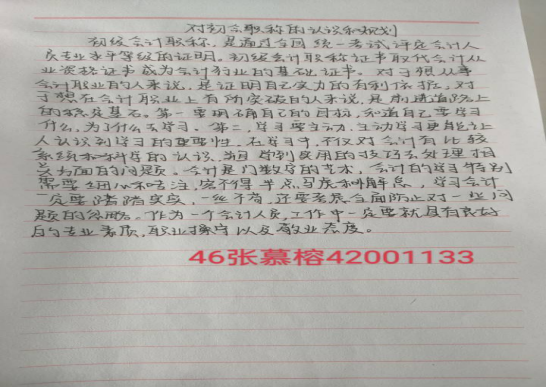 对初会职称的认识和规划
初级会计职称，是通过全国统一考试评定会计人
员专业水平等级的证明。初级会计职称证书取代会计从
业资格证书成为会计行业的基础证书。对于想从事
会计职业的人来说，是证明自己实力的有利依据，对
于想在会计职业上有所突破的人来说，是前进道路上
的基石。第一要明确自己的目标，知道自己要学习
什么，为了什么去学习。第二，学习要主动，主动学习更能让
人认识到学习的重要性，在学习中，不仅对会计有比较
系统和科学的认识，学到实用的技巧去处理相
关方面的问题。会计是门数字的艺术，会计的学习特别
需要细心和专注，容不得半点马虎和解怠，学习会计
一定要踏踏实实，一丝不苟，还要考虑全面防止对一些问
题的忽略。作为一个会计人员，工作中一定要就具有良好
的专业素质，职业操守以及敬业态度。
46张慕榕42001133